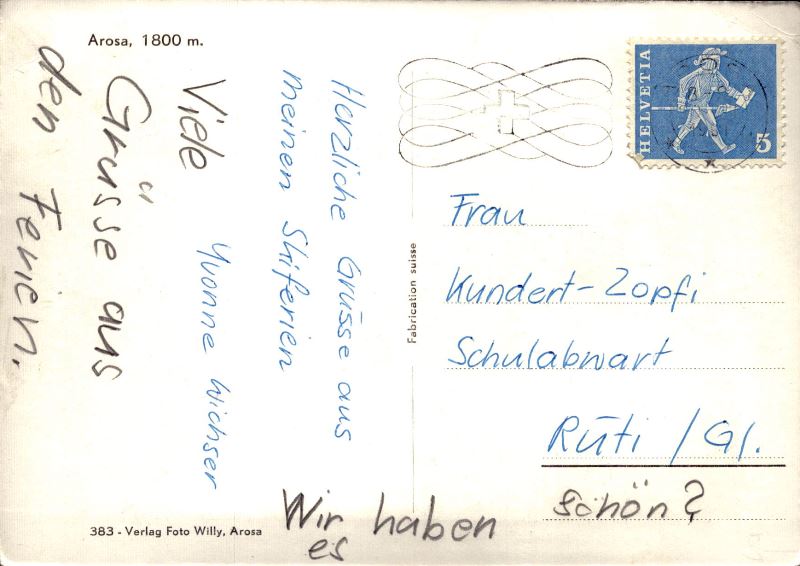 Arosa, 1800 m.
Herzliche Grüsse aus
meinen Skiferien
Yvonne Wichser
Viele
Grüsse aus
den Ferien.
Wir haben schön?
es
383 - Verlag Foto Willy, Arosa
Fabrication suisse
HELVETIA
5
Frau
Kundert-Zopfi
Schulabwart
Rüti / Gl.